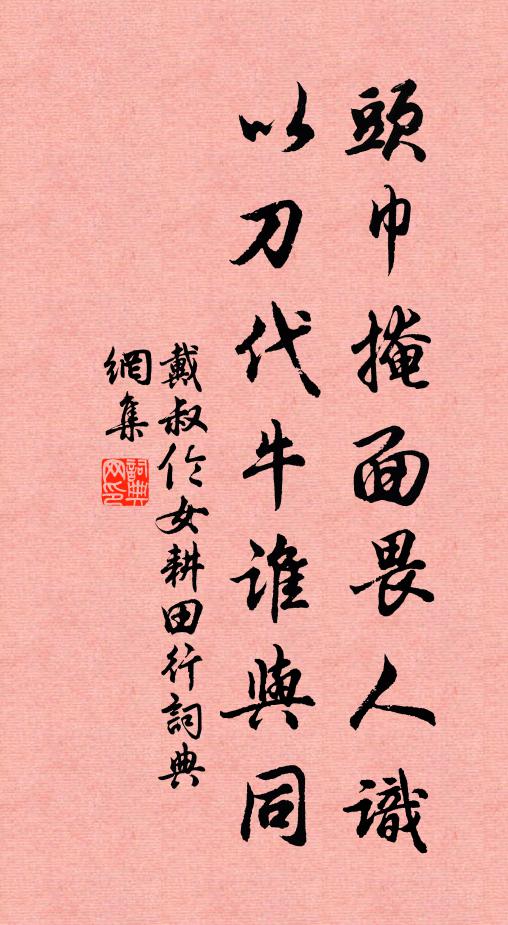 頭巾掩面畏人識
以刀代牛誰與同
戴叔伦女耕田行詞典
網集
詞典
网印